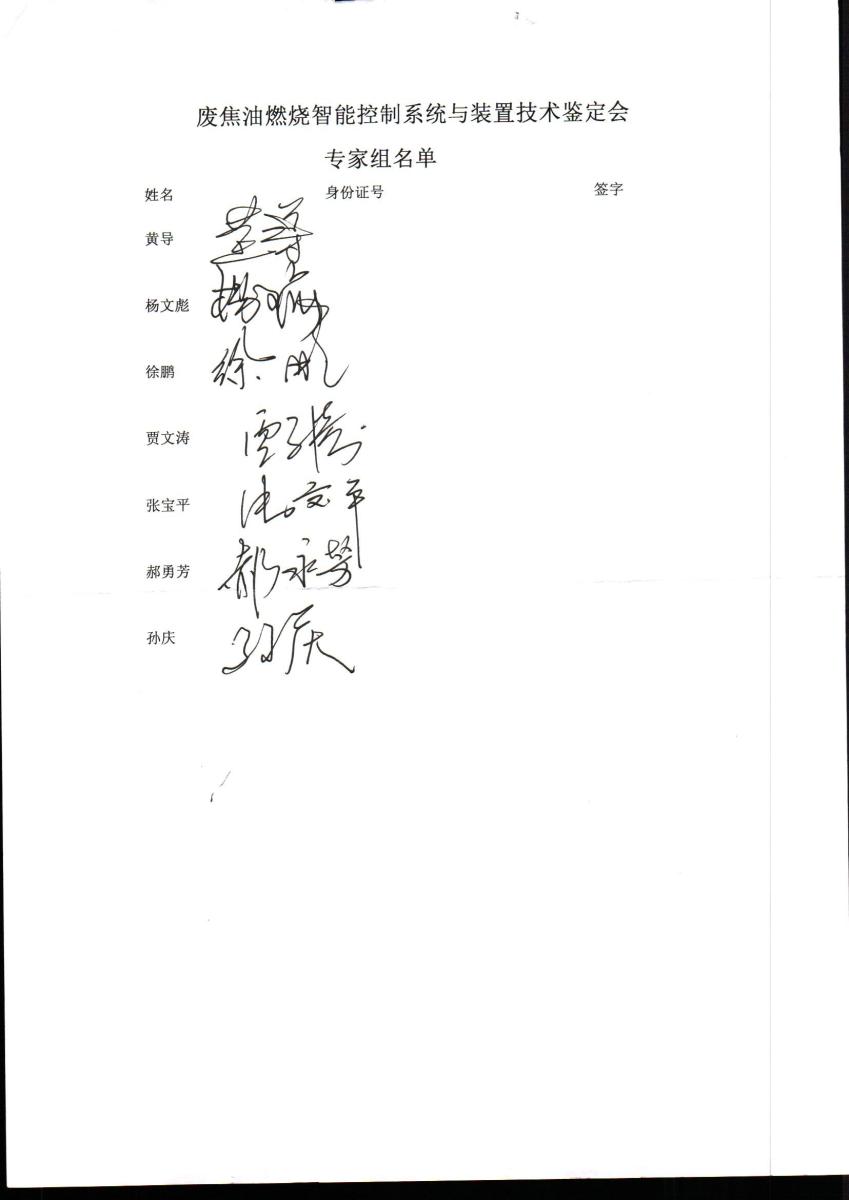 废焦油燃烧智能控制系统与装置技术鉴定会
专家组名单
姓名 身份证号 签字
黄导 黄导
杨文彪
徐鹏 徐鹏
贾文涛
张宝平
郝勇芳
孙庆 孙庆